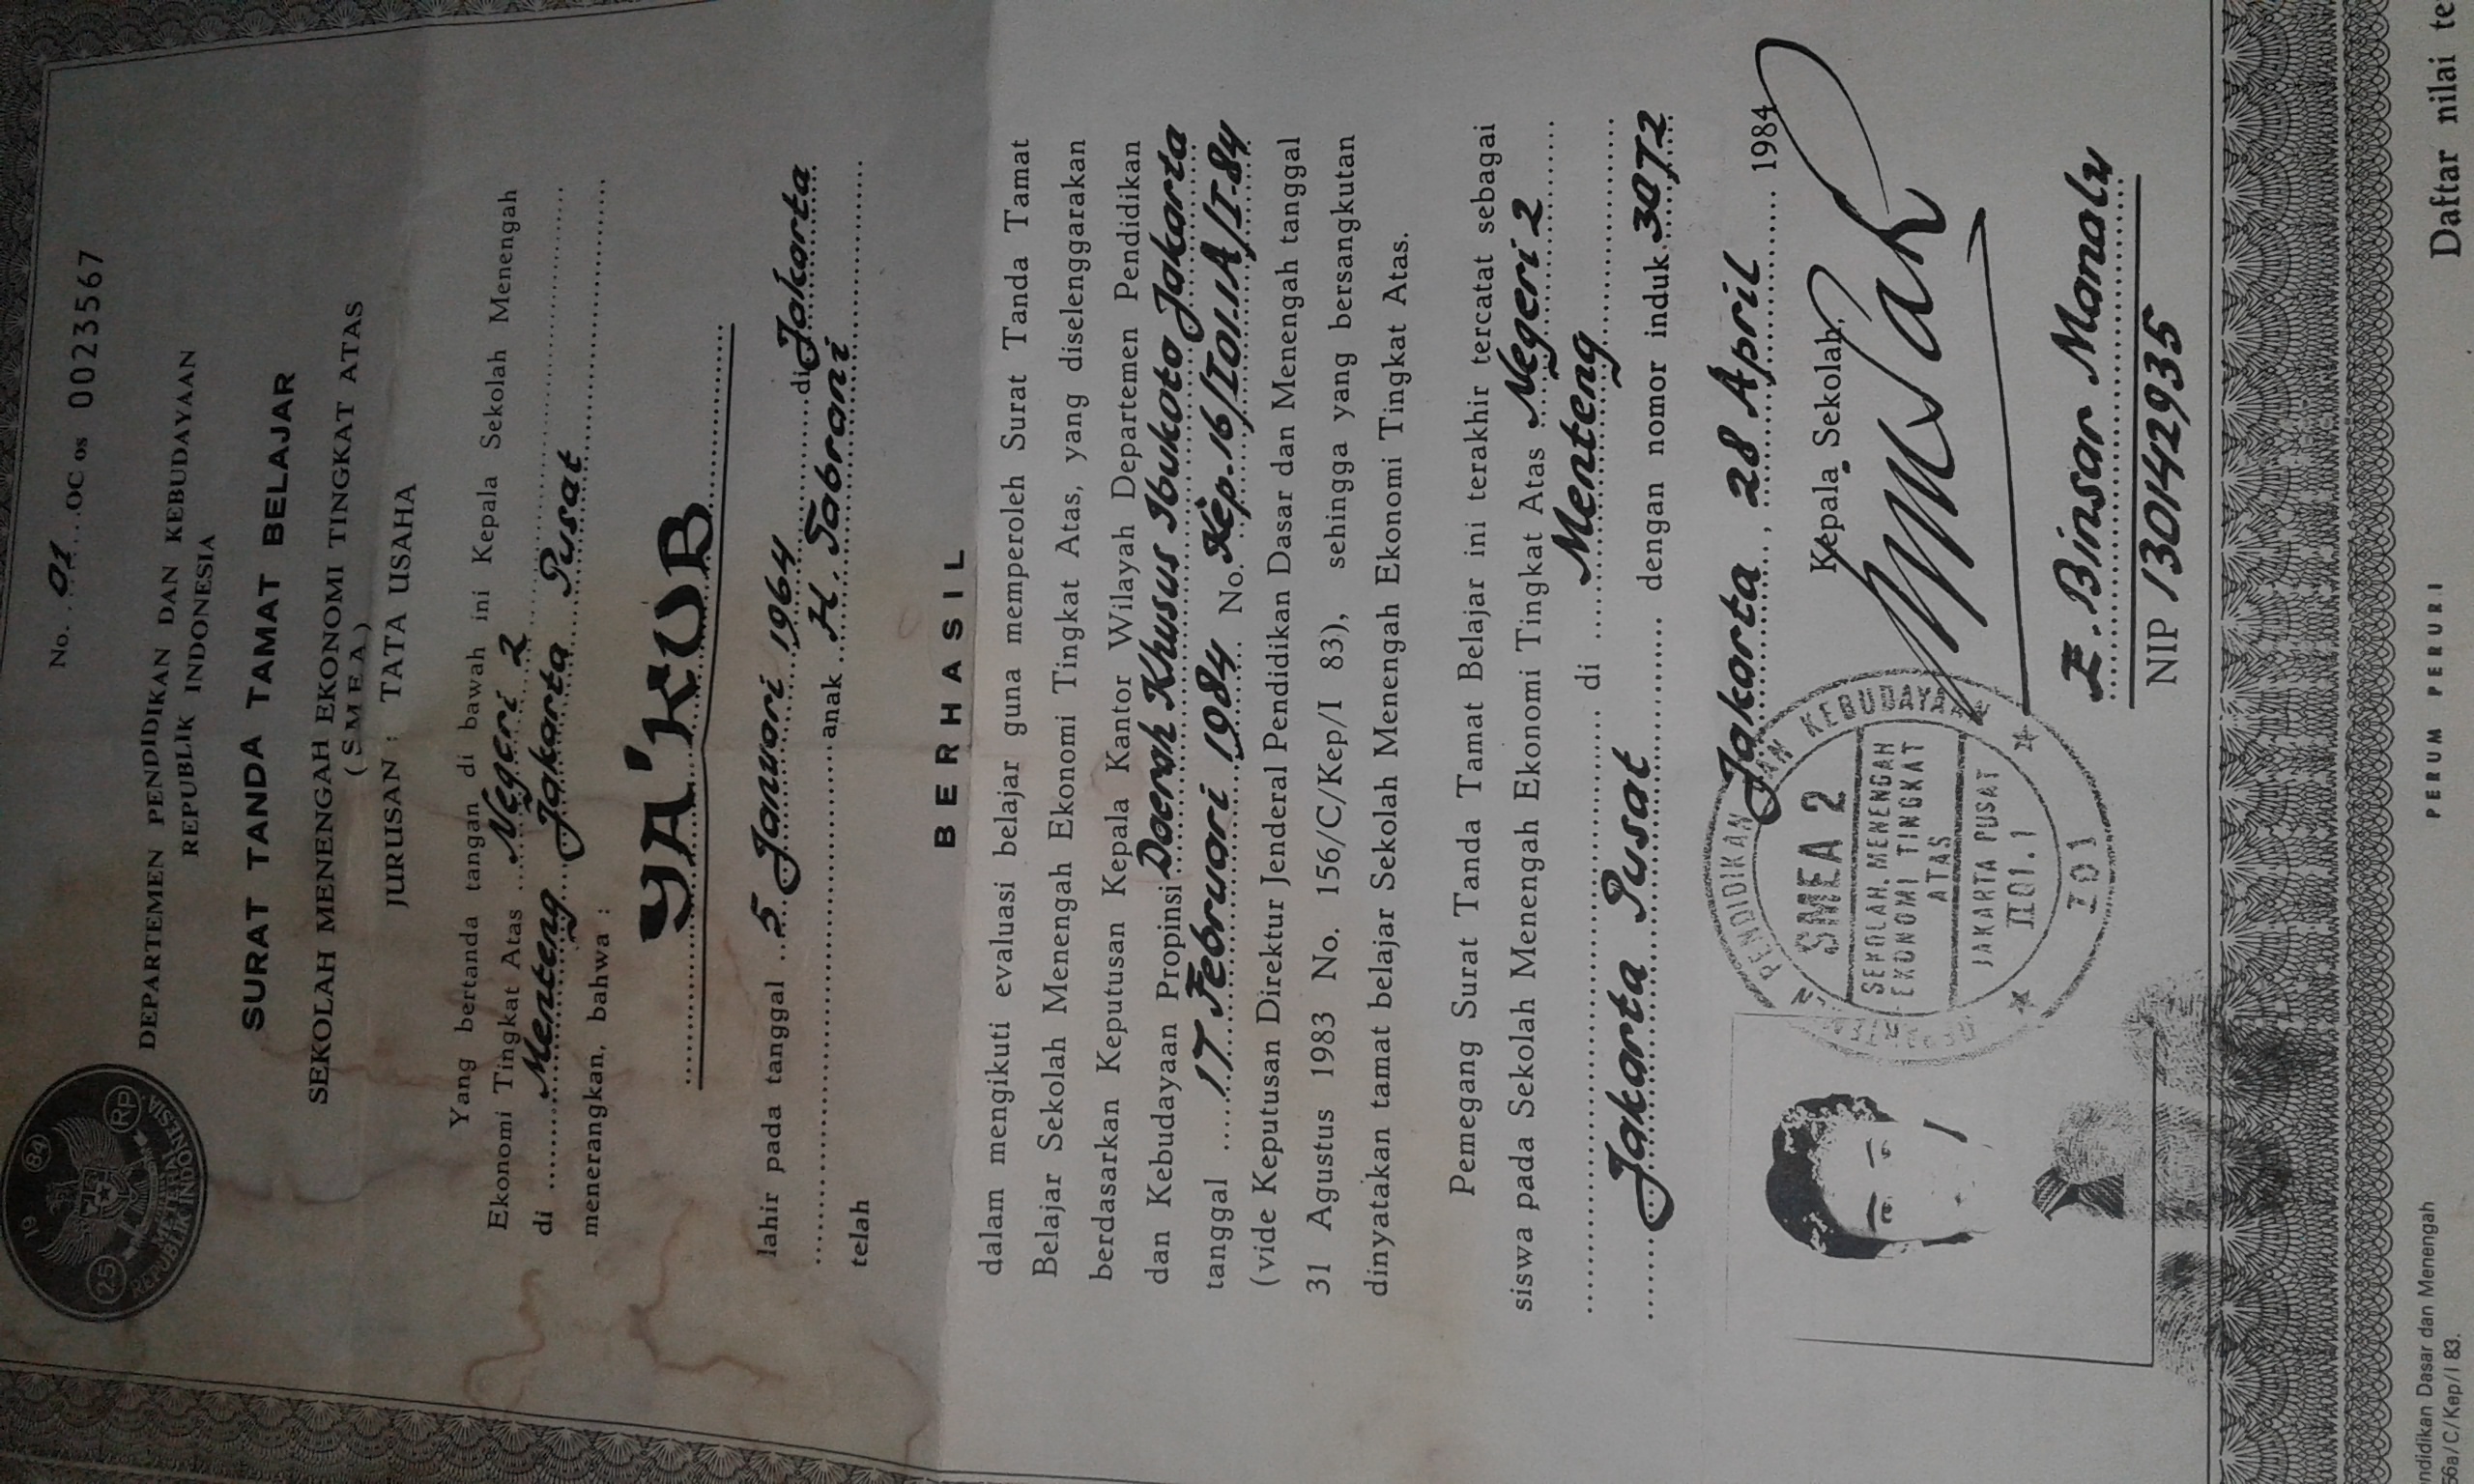 19 84
25 RP
METERAI
REPUBLIK INDONESIA
No. 01 OC os 0023567
DEPARTEMEN PENDIDIKAN DAN KEBUDAYAAN
REPUBLIK INDONESIA
SURAT TANDA TAMAT BELAJAR
SEKOLAH MENENGAH EKONOMI TINGKAT ATAS
(SMEA)
JURUSAN : TATA USAHA
Yang bertanda tangan di bawah ini Kepala Sekolah Menengah
Ekonomi Tingkat Atas Negeri 2
di Menteng Jakarta Pusat
menerangkan, bahwa :
YA'KUB
lahir pada tanggal 5 Januari 1964 di Jakarta
anak H. Tabrani
telah
BERHASIL
dalam mengikuti evaluasi belajar guna memperoleh Surat Tanda Tamat
Belajar Sekolah Menengah Ekonomi Tingkat Atas, yang diselenggarakan
berdasarkan Keputusan Kepala Kantor Wilayah Departemen Pendidikan
dan Kebudayaan Propinsi Daerah Khusus Ibukota Jakarta
tanggal 17 Februari 1984 No. Kep.16/I01.1A/I.84
(vide Keputusan Direktur Jenderal Pendidikan Dasar dan Menengah tanggal
31 Agustus 1983 No. 156/C/Kep/I 83), sehingga yang bersangkutan
dinyatakan tamat belajar Sekolah Menengah Ekonomi Tingkat Atas.
Pemegang Surat Tanda Tamat Belajar ini terakhir tercatat sebagai
siswa pada Sekolah Menengah Ekonomi Tingkat Atas Negeri 2
di Menteng
Jakarta Pusat dengan nomor induk 3072
Jakarta, 28 April 1984
Kepala Sekolah,
DEPARTEMEN PENDIDIKAN DAN KEBUDAYAAN
SMEA 2
SEKOLAH MENENGAH
EKONOMI TINGKAT
ATAS
JAKARTA PUSAT
II01.1
I01
E. Binsar Manalu
NIP 130142935
ndidikan Dasar dan Menengah
56a/C/Kep/I 83.
PERUM PERURI
Daftar nilai te